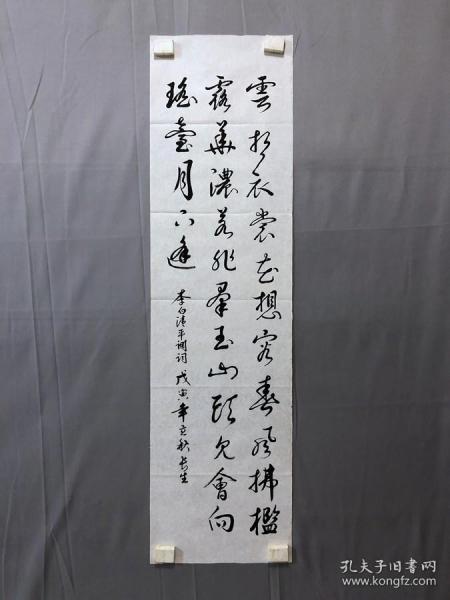 雲想衣裳花想容春風拂檻
露華濃若非羣玉山頭見會向
瑤臺月下逢
李白清平調詞 戊寅年立秋長生
孔夫子旧书网
www.kongfz.com